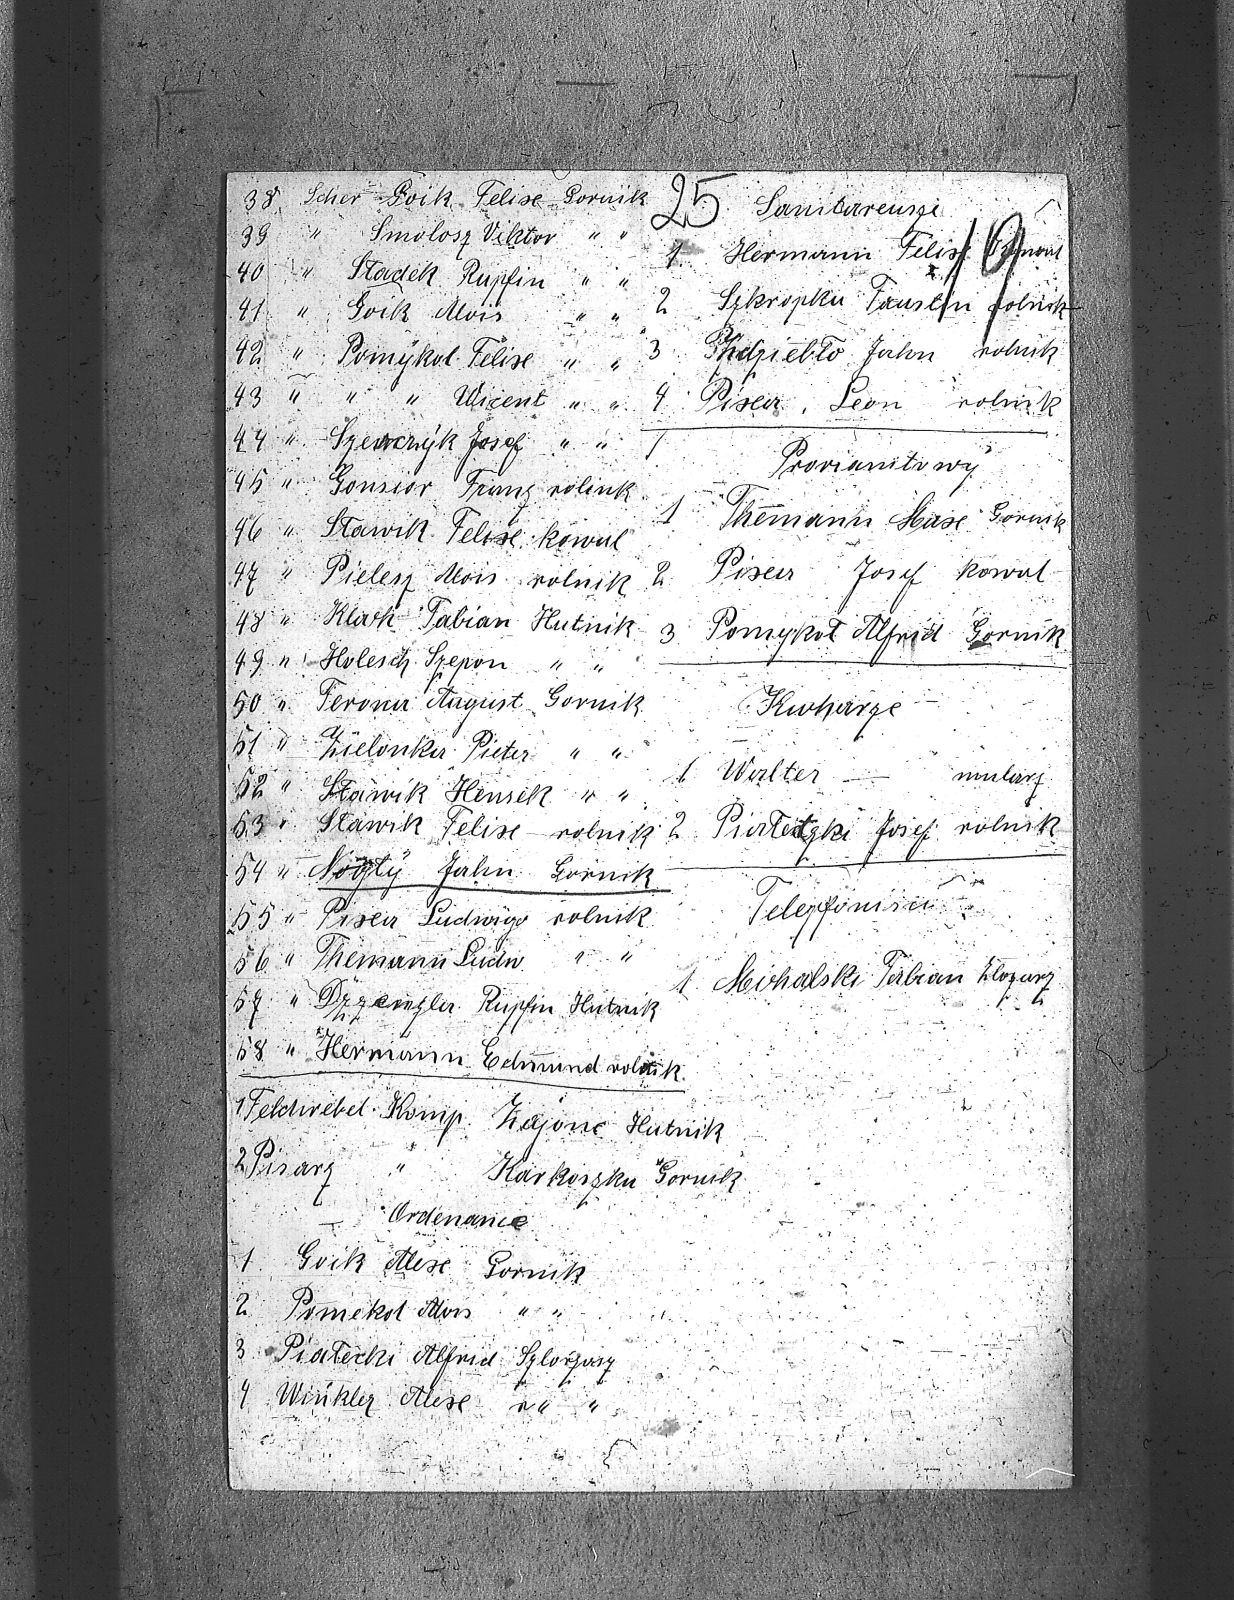 38 Scher Goik Felise Gornik
39 " Smolosz Viktor " "
40 " Stadek Ruffin " "
41 " Goik Alois " "
42 " Pomykol Felise " "
43 " " " Wicent " "
44 " Szewczyk Josef " "
45 " Gonsior Franz rolink
46 " Stawik Felise kowal
47 " Pielesz Alois rolnik
48 " Klark Fabian Hutnik
49 " Holesch Szepon " "
50 " Ferona August Gornik
51 " Zielonka Pieter " "
52 " Stawik Hensek " "
53 " Stawik Felise rolnik
54 " Nogly Jahn Gornik
55 " Pisar Ludwigo rolnik
56 " Themann Ludw " "
57 " Ruffin Hutnik
58 " Hermann Edmund rolnik
1 Feldwebel Komp. Zajonc Hutnik
2 Pisarz " Karkoszka Gornik
Ordenance
1 Goik Alese Gornik
2 Pomekol Alois " "
3 Piatecki Alfrid
4 Winkler Alese " "
25
19
Sanitareusze
1 Hermann Felise
2 Szkropka Faustin rolnik
3 Zhdziebło Jahn rolnik
4 Pisar. Leon rolnik
Proviantowy
1 Themann Gornik
2 Pisar Josef kowal
3 Pomykol Alfrid Gornik
Kuharze
1 Walter — mularz
2 Piatetzki Josef rolnik
Telefonisci
1 Mihalski Fabian